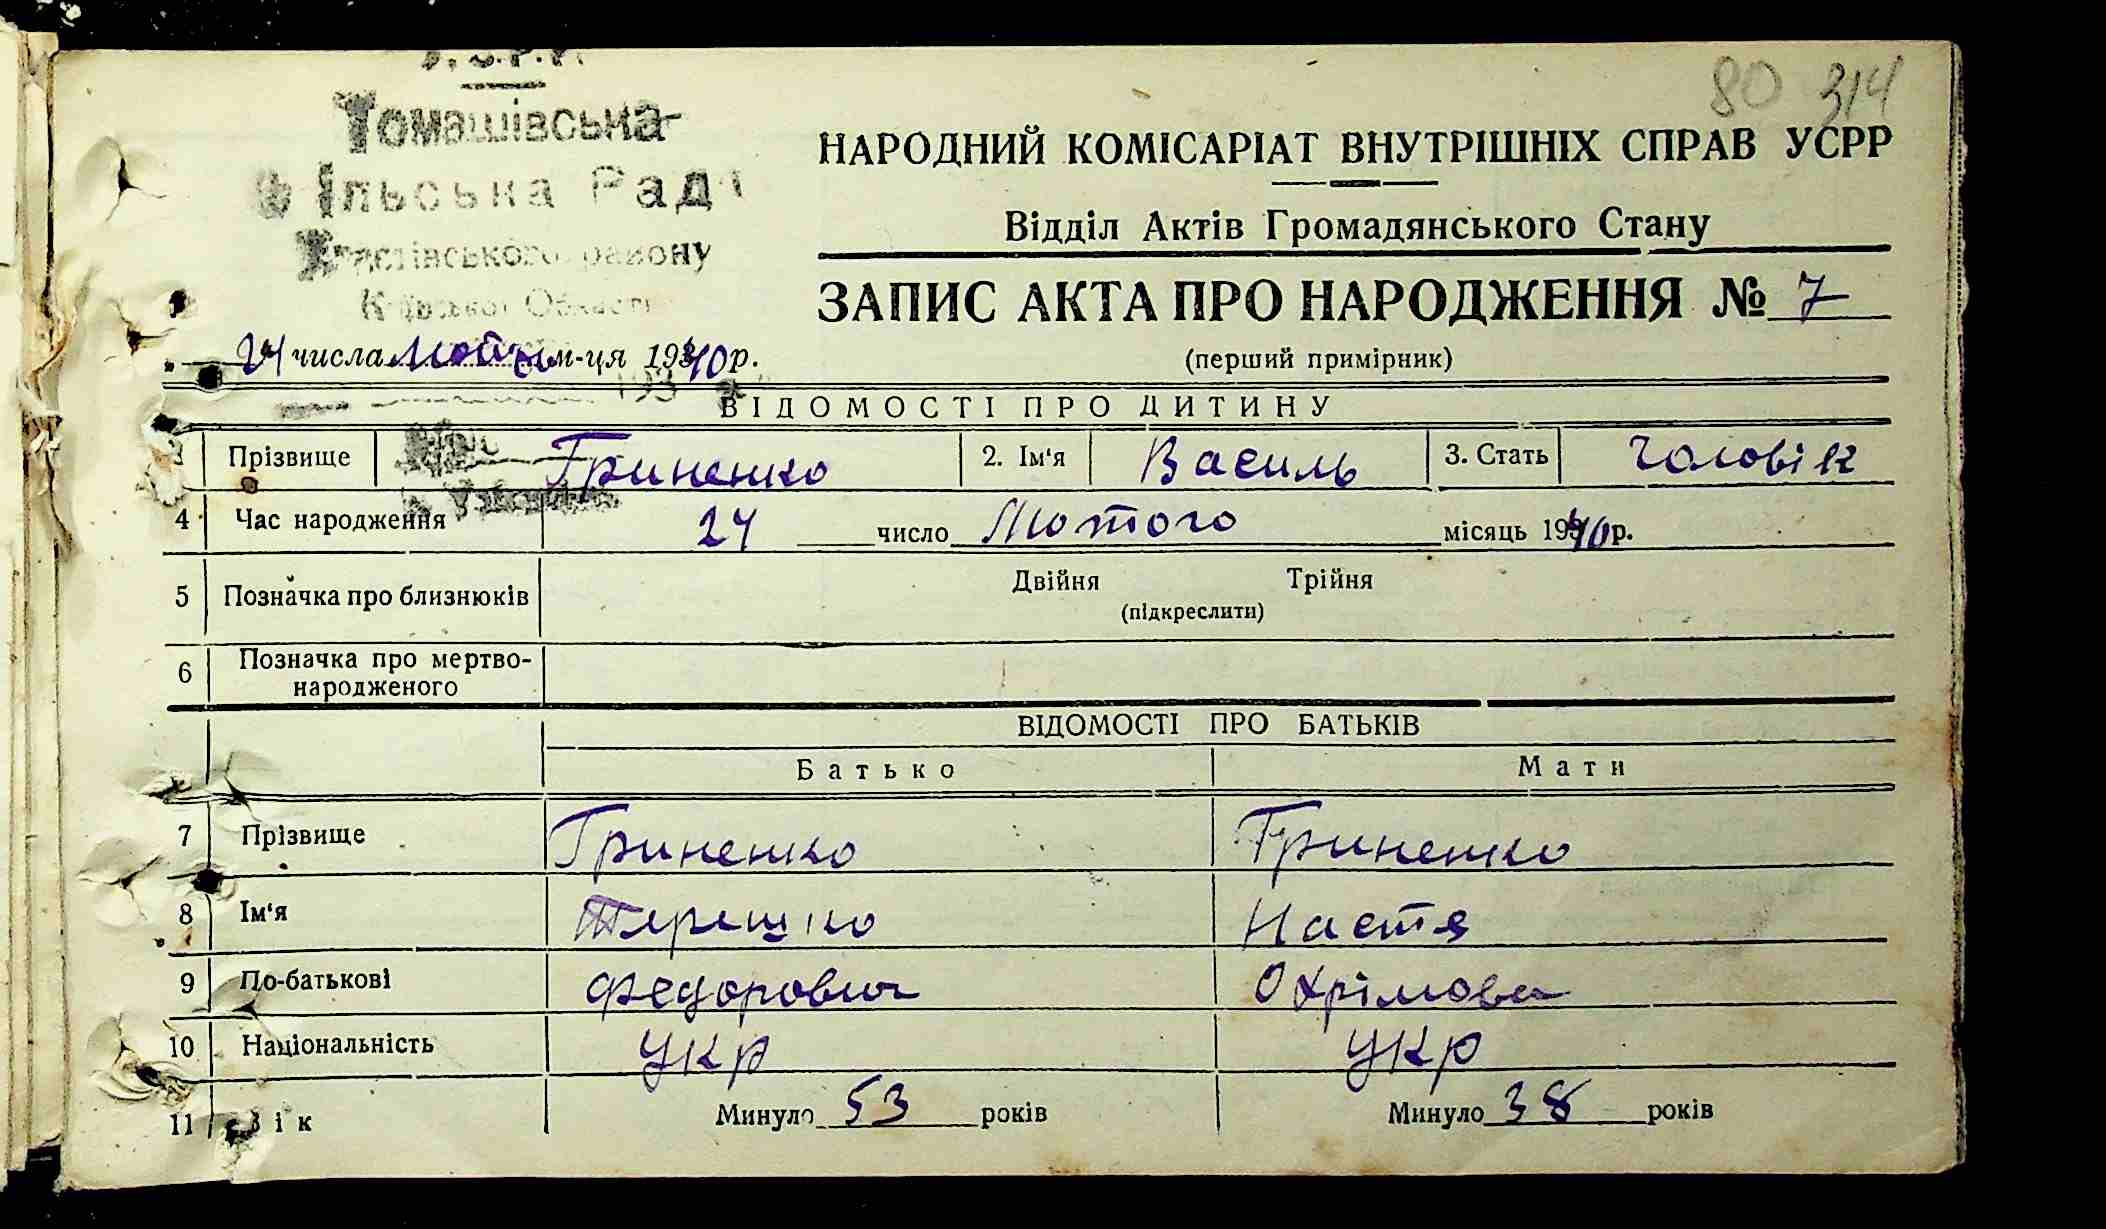 У.С.Р.Р.
80 314
Томашівська
Сільська Рада
району
Київської Області
НАРОДНИЙ КОМІСАРІАТ ВНУТРІШНІХ СПРАВ УСРР
Відділ Актів Громадянського Стану
ЗАПИС АКТА ПРО НАРОДЖЕННЯ № 7
(перший примірник)
„ 24 числа м-ця 1940 р.
193
ВІДОМОСТІ ПРО ДИТИНУ
1 Прізвище Гриненко 2. Ім'я Василь 3. Стать Чоловік
4 Час народження 24 число Лютого місяць 1940 р.
5 Позначка про близнюків Двійня Трійня
(підкреслити)
6 Позначка про мертво-
народженого
ВІДОМОСТІ ПРО БАТЬКІВ
Батько Мати
7 Прізвище Гриненко Гриненко
8 Ім'я Терешко Настя
9 По-батькові Федорович Охрімовна
10 Національність укр укр
11 Вік Минуло 53 років Минуло 38 років